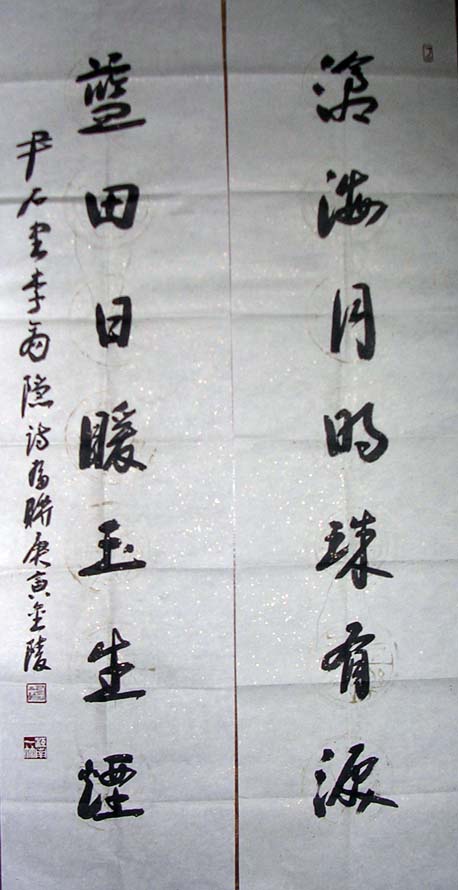 滄海月明珠有淚
藍田日暖玉生煙
尹石書李商隱詩為聯庚寅金陵